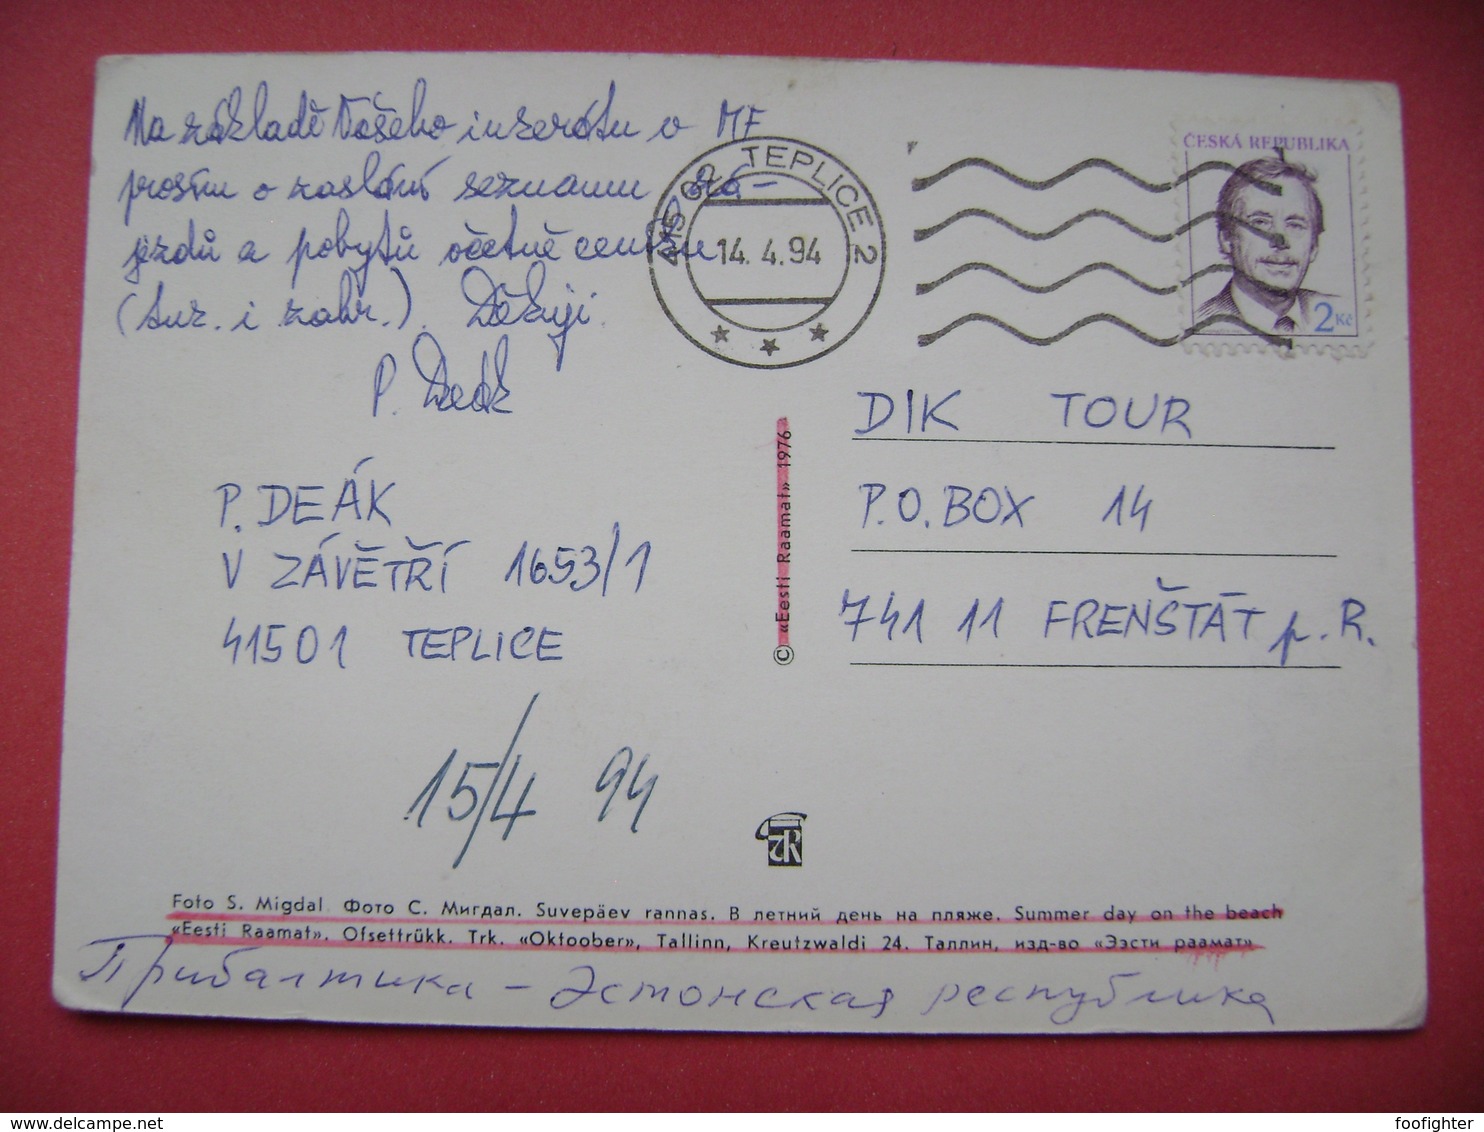 Na základě Vašeho inzerátu v MF
prosím o zaslání seznamu zá-
jezdů a pobytů včetně ceníku
(tuz. i zahr.). Děkuji.
P. Deák
P. DEÁK
V ZÁVĚTŘÍ 1653/1
41501 TEPLICE
15/4 94
415 02 TEPLICE 2
14.4.94
ČESKÁ REPUBLIKA
2 Kč
DIK TOUR
P.O. BOX 14
741 11 FRENŠTÁT p. R.
© «Eesti Raamat» 1976
Foto S. Migdal. Фото С. Мигдал. Suvepäev rannas. В летний день на пляже. Summer day on the beach
«Eesti Raamat». Ofsettrükk. Trk. «Oktoober», Tallinn, Kreutzwaldi 24. Таллин, изд-во «Ээсти раамат»
Прибалтика – Эстонская республика
foofighter
http://www.delcampe.net